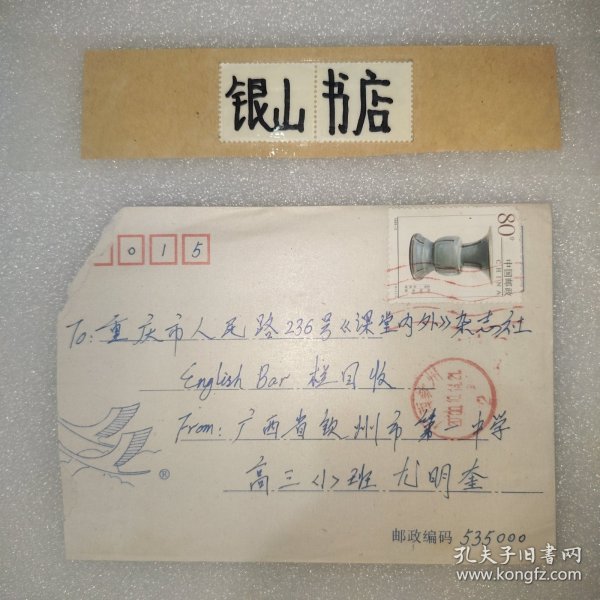 银山书店
80分
中国邮政
CHINA
0 1 5
To: 重庆市人民路236号《课堂内外》杂志社
English Bar 栏目收
From: 广西省钦州市第一中学
高三〈1〉班 尤明奎
®
邮政编码 535000
孔夫子旧书网
www.kongfz.com